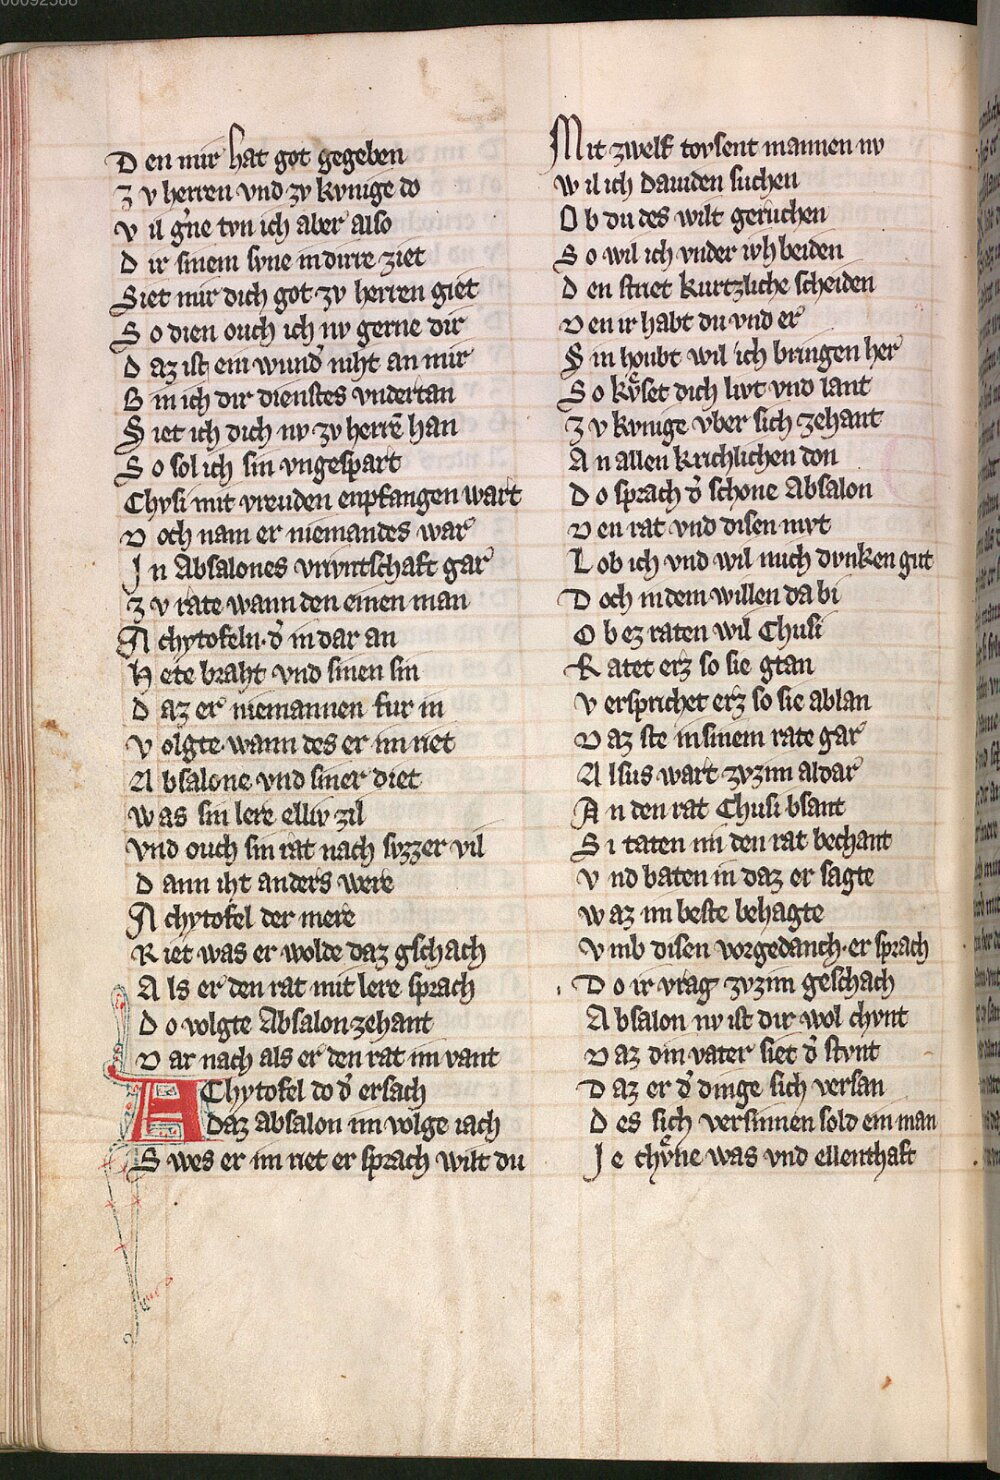 00092588
Den mir hat got gegeben
Zv herren vnd zv kvnige do
vil g'ne tvn ich aber also
Dir sinem svne in dirre ziet
Siet mir dich got zv herren giet
So dien ouch ich nv gerne dir
Daz ist ein wund' niht an mir
Bin ich dir dienstes vndertan
Siet ich dich nv zv herrē han
So sol ich sin vngespart
Chvsi mit vreuden enpfangen wart
Doch nam er niemandes war
In Absalones vrivntschaft gar
Zv rate wann den einen man
Achytofeln · d' in dar an
Hete braht vnd sinen sin
Daz er niemannen fur in
Volgte · wann des er im riet
Absalone vnd siner diet
Was sin lere elliv zil
Vnd ouch sin rat nach svzzer vil
Dann iht anders were
Achytofel der mere
Riet was er wolde daz gschach
Als er den rat mit lere sprach
Do volgte Absalon zehant
Dar nach als er den rat im vant
Achytofel do d' ersach
Daz absalon im volge iach
Swes er im riet er sprach wilt du
Mit zwelf tovsent mannen nv
Wil ich Dauiden suchen
Ob du des wilt geruchen
So wil ich vnder ivh beiden
Den striet kurtzliche scheiden
Den ir habt du vnd er
Sin houbt wil ich bringen her
So kvset dich livt vnd lant
Zv kvnige vber sich zehant
An allen krichlichen don
Do sprach d' schone Absalon
Den rat vnd disen mvt
Lob ich vnd wil mich dvnken gut
Doch in dem willen da bi
Ob ez raten wil Chusi
Ratet erz so sie gtan
Versprichet erz so sie ablan
Daz ste in sinem rate gar
Alsus wart zvzim aldar
An den rat Chusi bsant
Si taten im den rat bechant
Vnd baten in daz er sagte
Waz im beste behagte
Vmb disen vorgedanch · er sprach
Do ir vrag zvzim geschach
Absalon nv ist dir wol chvnt
Daz din vater siet d' stvnt
Daz er d' dinge sich versan
Des sich versinnen sold ein man
Je chvne was vnd ellenthaft